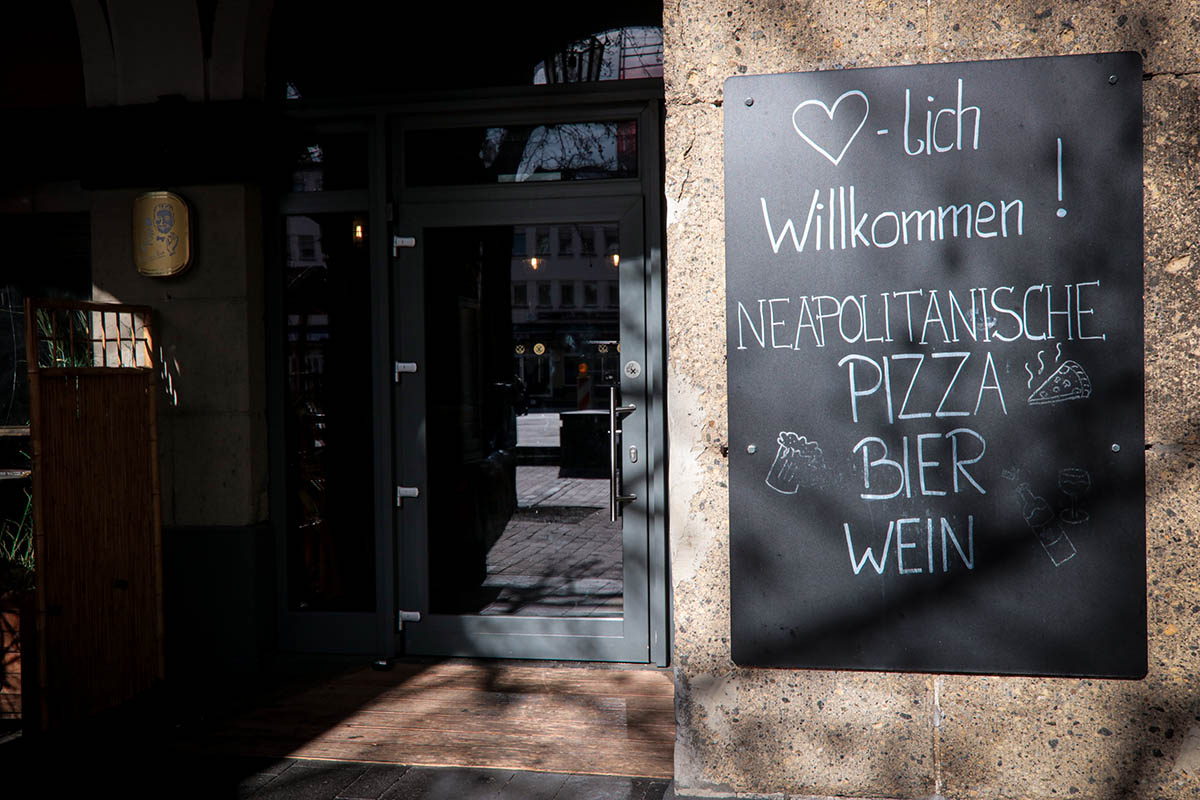 ♡-lich
Willkommen!
NEAPOLITANISCHE
PIZZA
BIER
WEIN